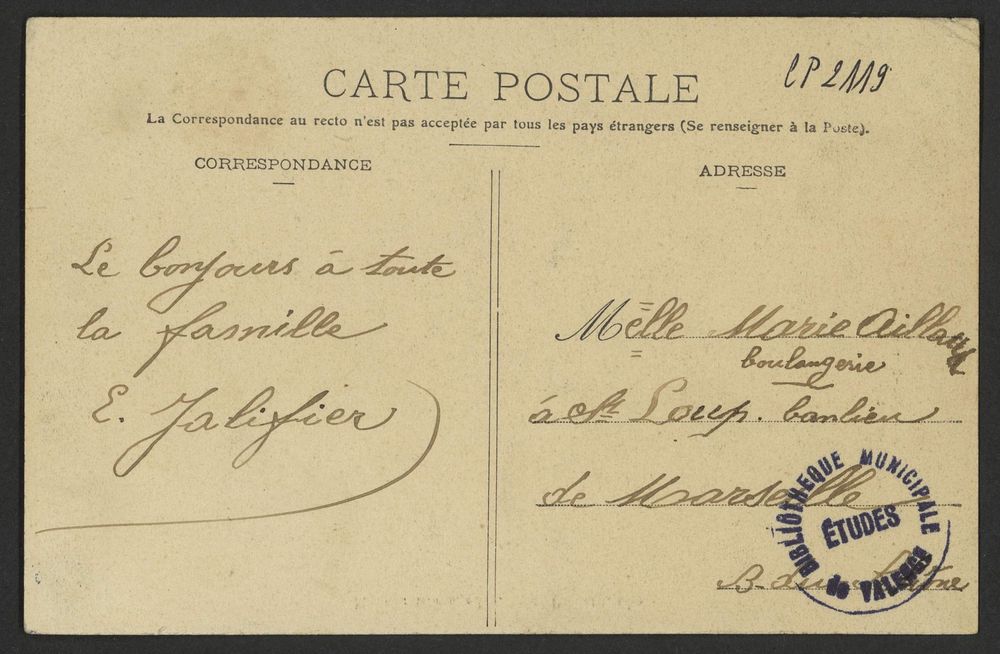 CP 2119
CARTE POSTALE
La Correspondance au recto n'est pas acceptée par tous les pays étrangers (Se renseigner à la Poste).
CORRESPONDANCE
Le bonjours à toute
la famille
E. Jalifier
ADRESSE
Melle Marie Aillaud
boulangerie
à St Loup. banlieu
de Marseille
B. du Rhône
BIBLIOTHEQUE MUNICIPALE
ÉTUDES
de VALENCE